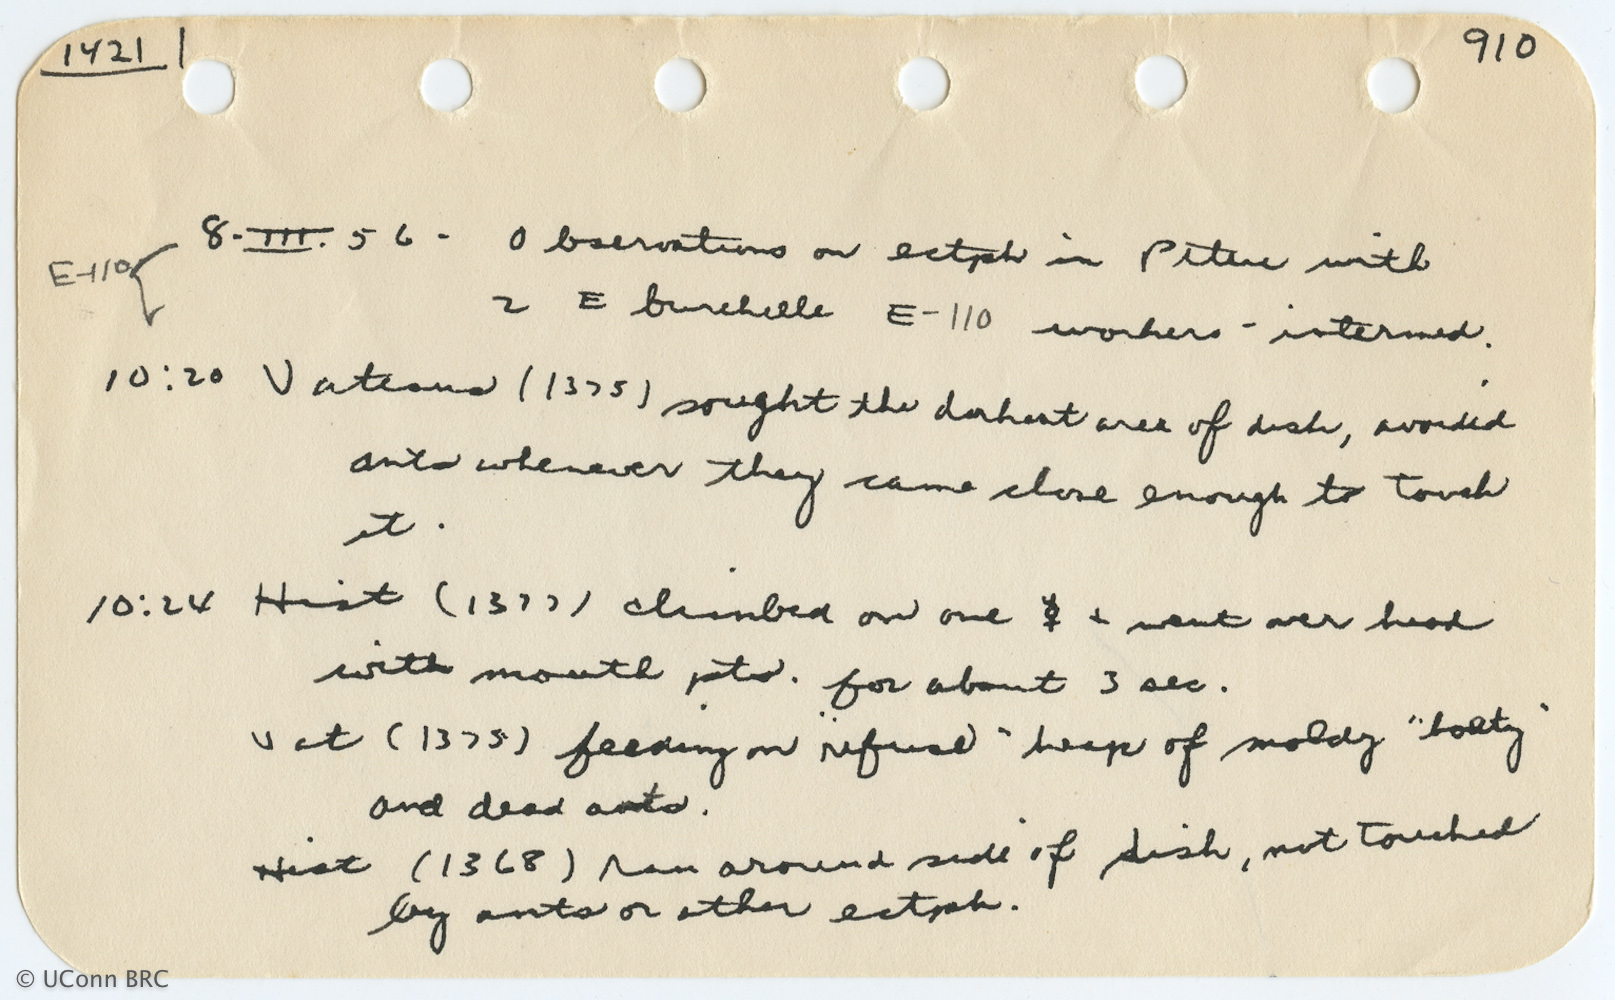 1421 910
8-III.56- Observations on ectph in Petri with
E-110
2 E burchelli E-110 workers - intermed.
10:20 Vatesus (1375) sought the darkest area of dish, avoided
ants whenever they came close enough to touch
it.
10:24 Hist (1377) climbed on one ☿ + went over head
with mouth pts. for about 3 sec.
Vat (1375) feeding on "refuse" heap of moldy "booty"
and dead ants.
Hist (1368) ran around side of dish, not touched
by ants or other ectph.
© UConn BRC